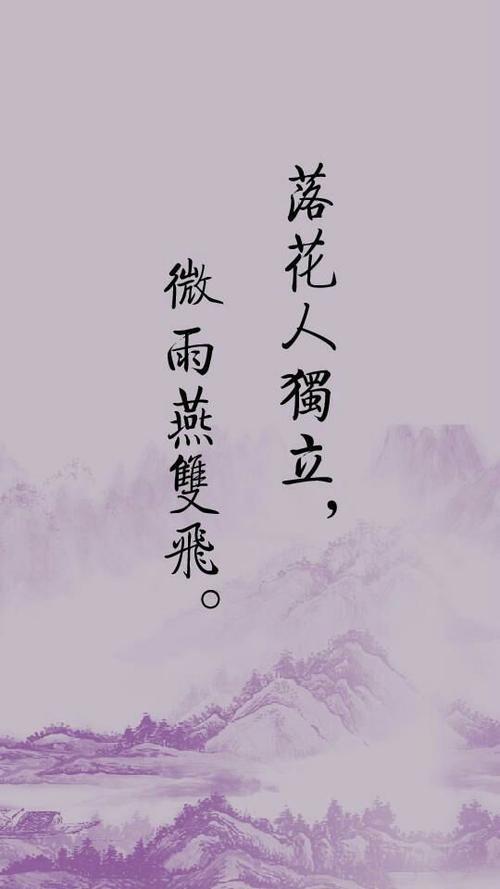 落花人獨立，
微雨燕雙飛。